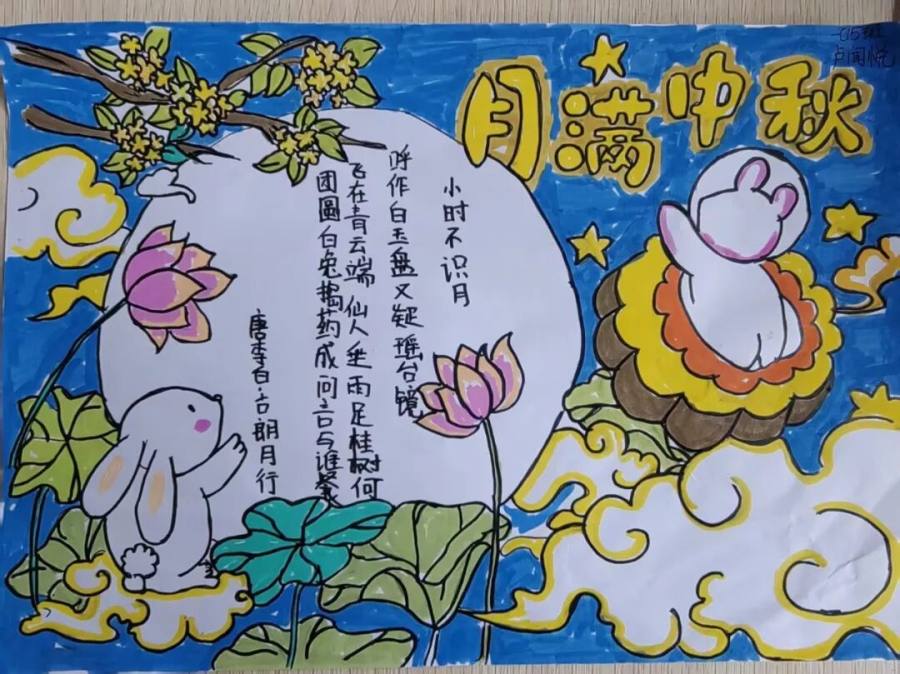 月满中秋
卢闻悦
小时不识月
呼作白玉盘又疑瑶台镜
飞在青云端仙人垂雨足桂树何
团圆白兔捣药成问言与谁餐
唐李白·古朗月行